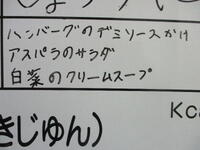 ハンバーグのデミソースかけ
アスパラのサラダ
白菜のクリームスープ
きじゅん)
Kc